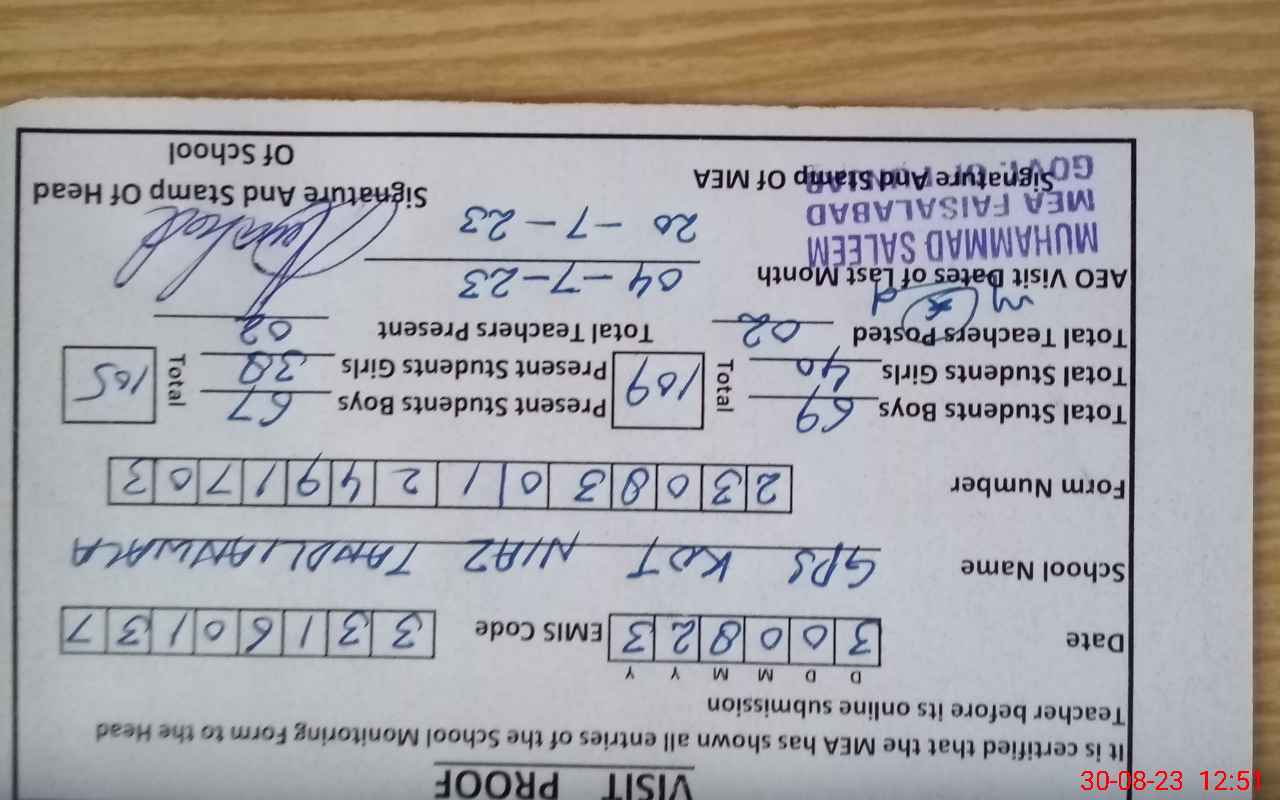 VISIT PROOF
It is certified that the MEA has shown all entries of the School Monitoring Form to the Head
Teacher before its online submission
D D M M Y Y
Date 3 0 0 8 2 3 EMIS Code 3 3 1 6 0 1 3 7
School Name GPS KOT NIAZ TANDLIANWALA
Form Number 2 3 0 8 3 0 1 2 4 9 1 7 0 3
Total Students Boys 69 Total 109 Present Students Boys 67 Total 105
Total Students Girls 40 Present Students Girls 38
Total Teachers Posted 02 Total Teachers Present 02
AEO Visit Dates of Last Month 04-7-23
20-7-23
MUHAMMAD SALEEM
MEA FAISALABAD
Signature And Stamp Of MEA Signature And Stamp Of Head
Of School
30-08-23 12:51